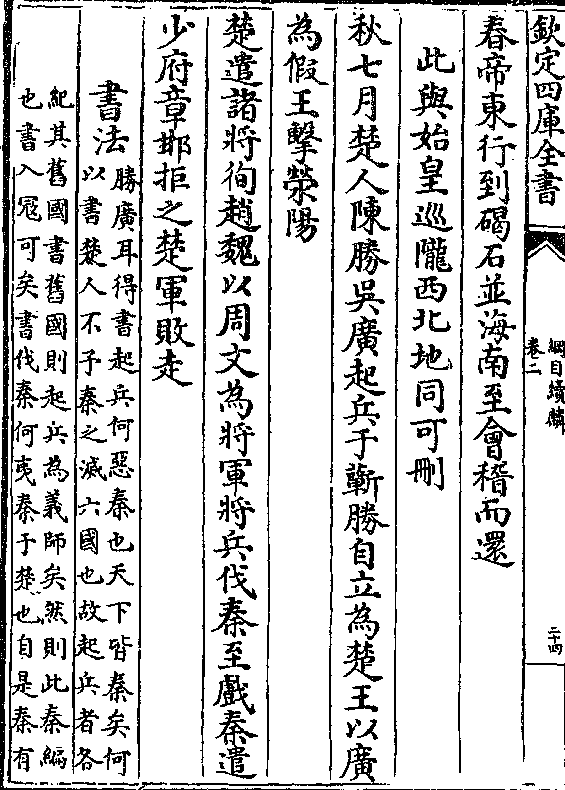 欽定四庫全書
綱目續麟
卷二
二十四
春帝東行到碣石並海南至會稽而還
此與始皇巡隴西北地同可刪
秋七月楚人陳勝吳廣起兵于蘄勝自立為楚王以廣
為假王擊滎陽
楚遣諸將徇趙魏以周文為將軍將兵伐秦至戲秦遣
少府章邯拒之楚軍敗走
書法
勝廣耳得書起兵何惡秦也天下皆秦矣何
以書楚人不予秦之滅六國也故起兵者各
紀其舊國書舊國則起兵為義師矣然則此秦編
也書入冦可矣書伐秦何夷秦于楚也自是秦有